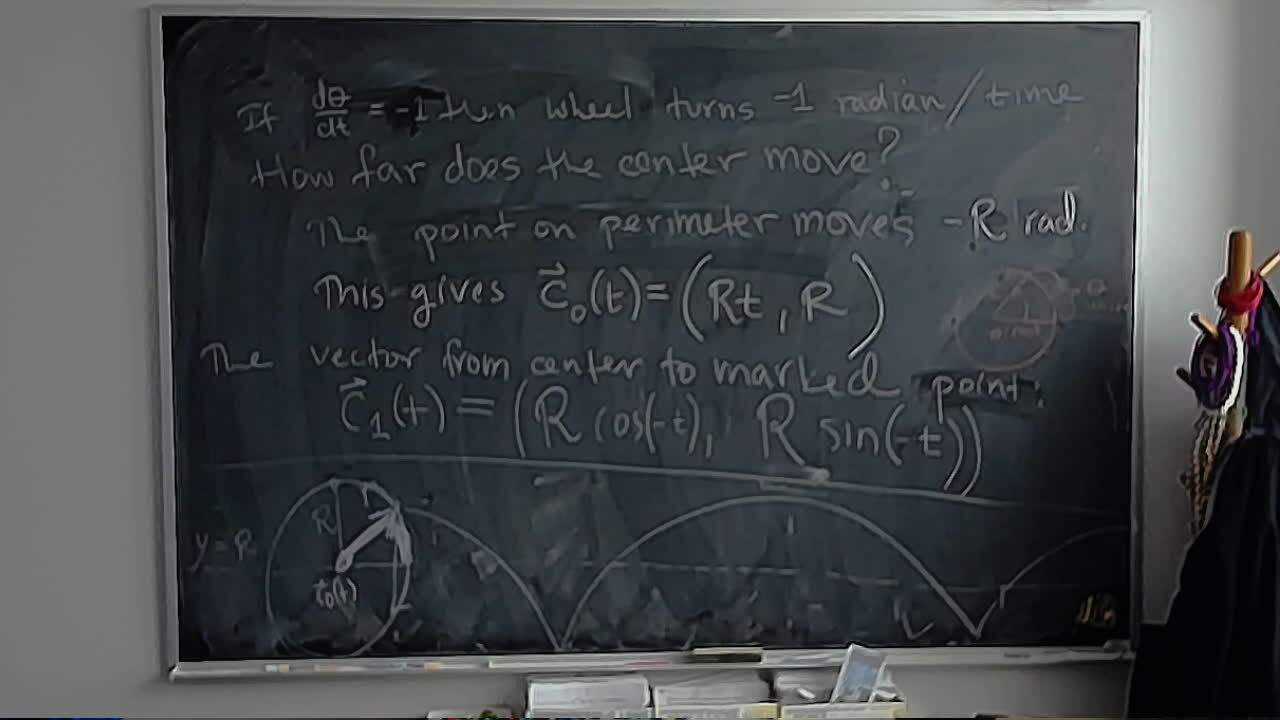 If dθ/dt = -1 then wheel turns -1 radian/time
How far does the center move?
The point on perimeter moves -R rad.
This gives c⃗₀(t)=(Rt, R)
The vector from center to marked point:
c⃗₁(t) = (R cos(-t), R sin(-t))
R
y=R
c⃗₀(t)